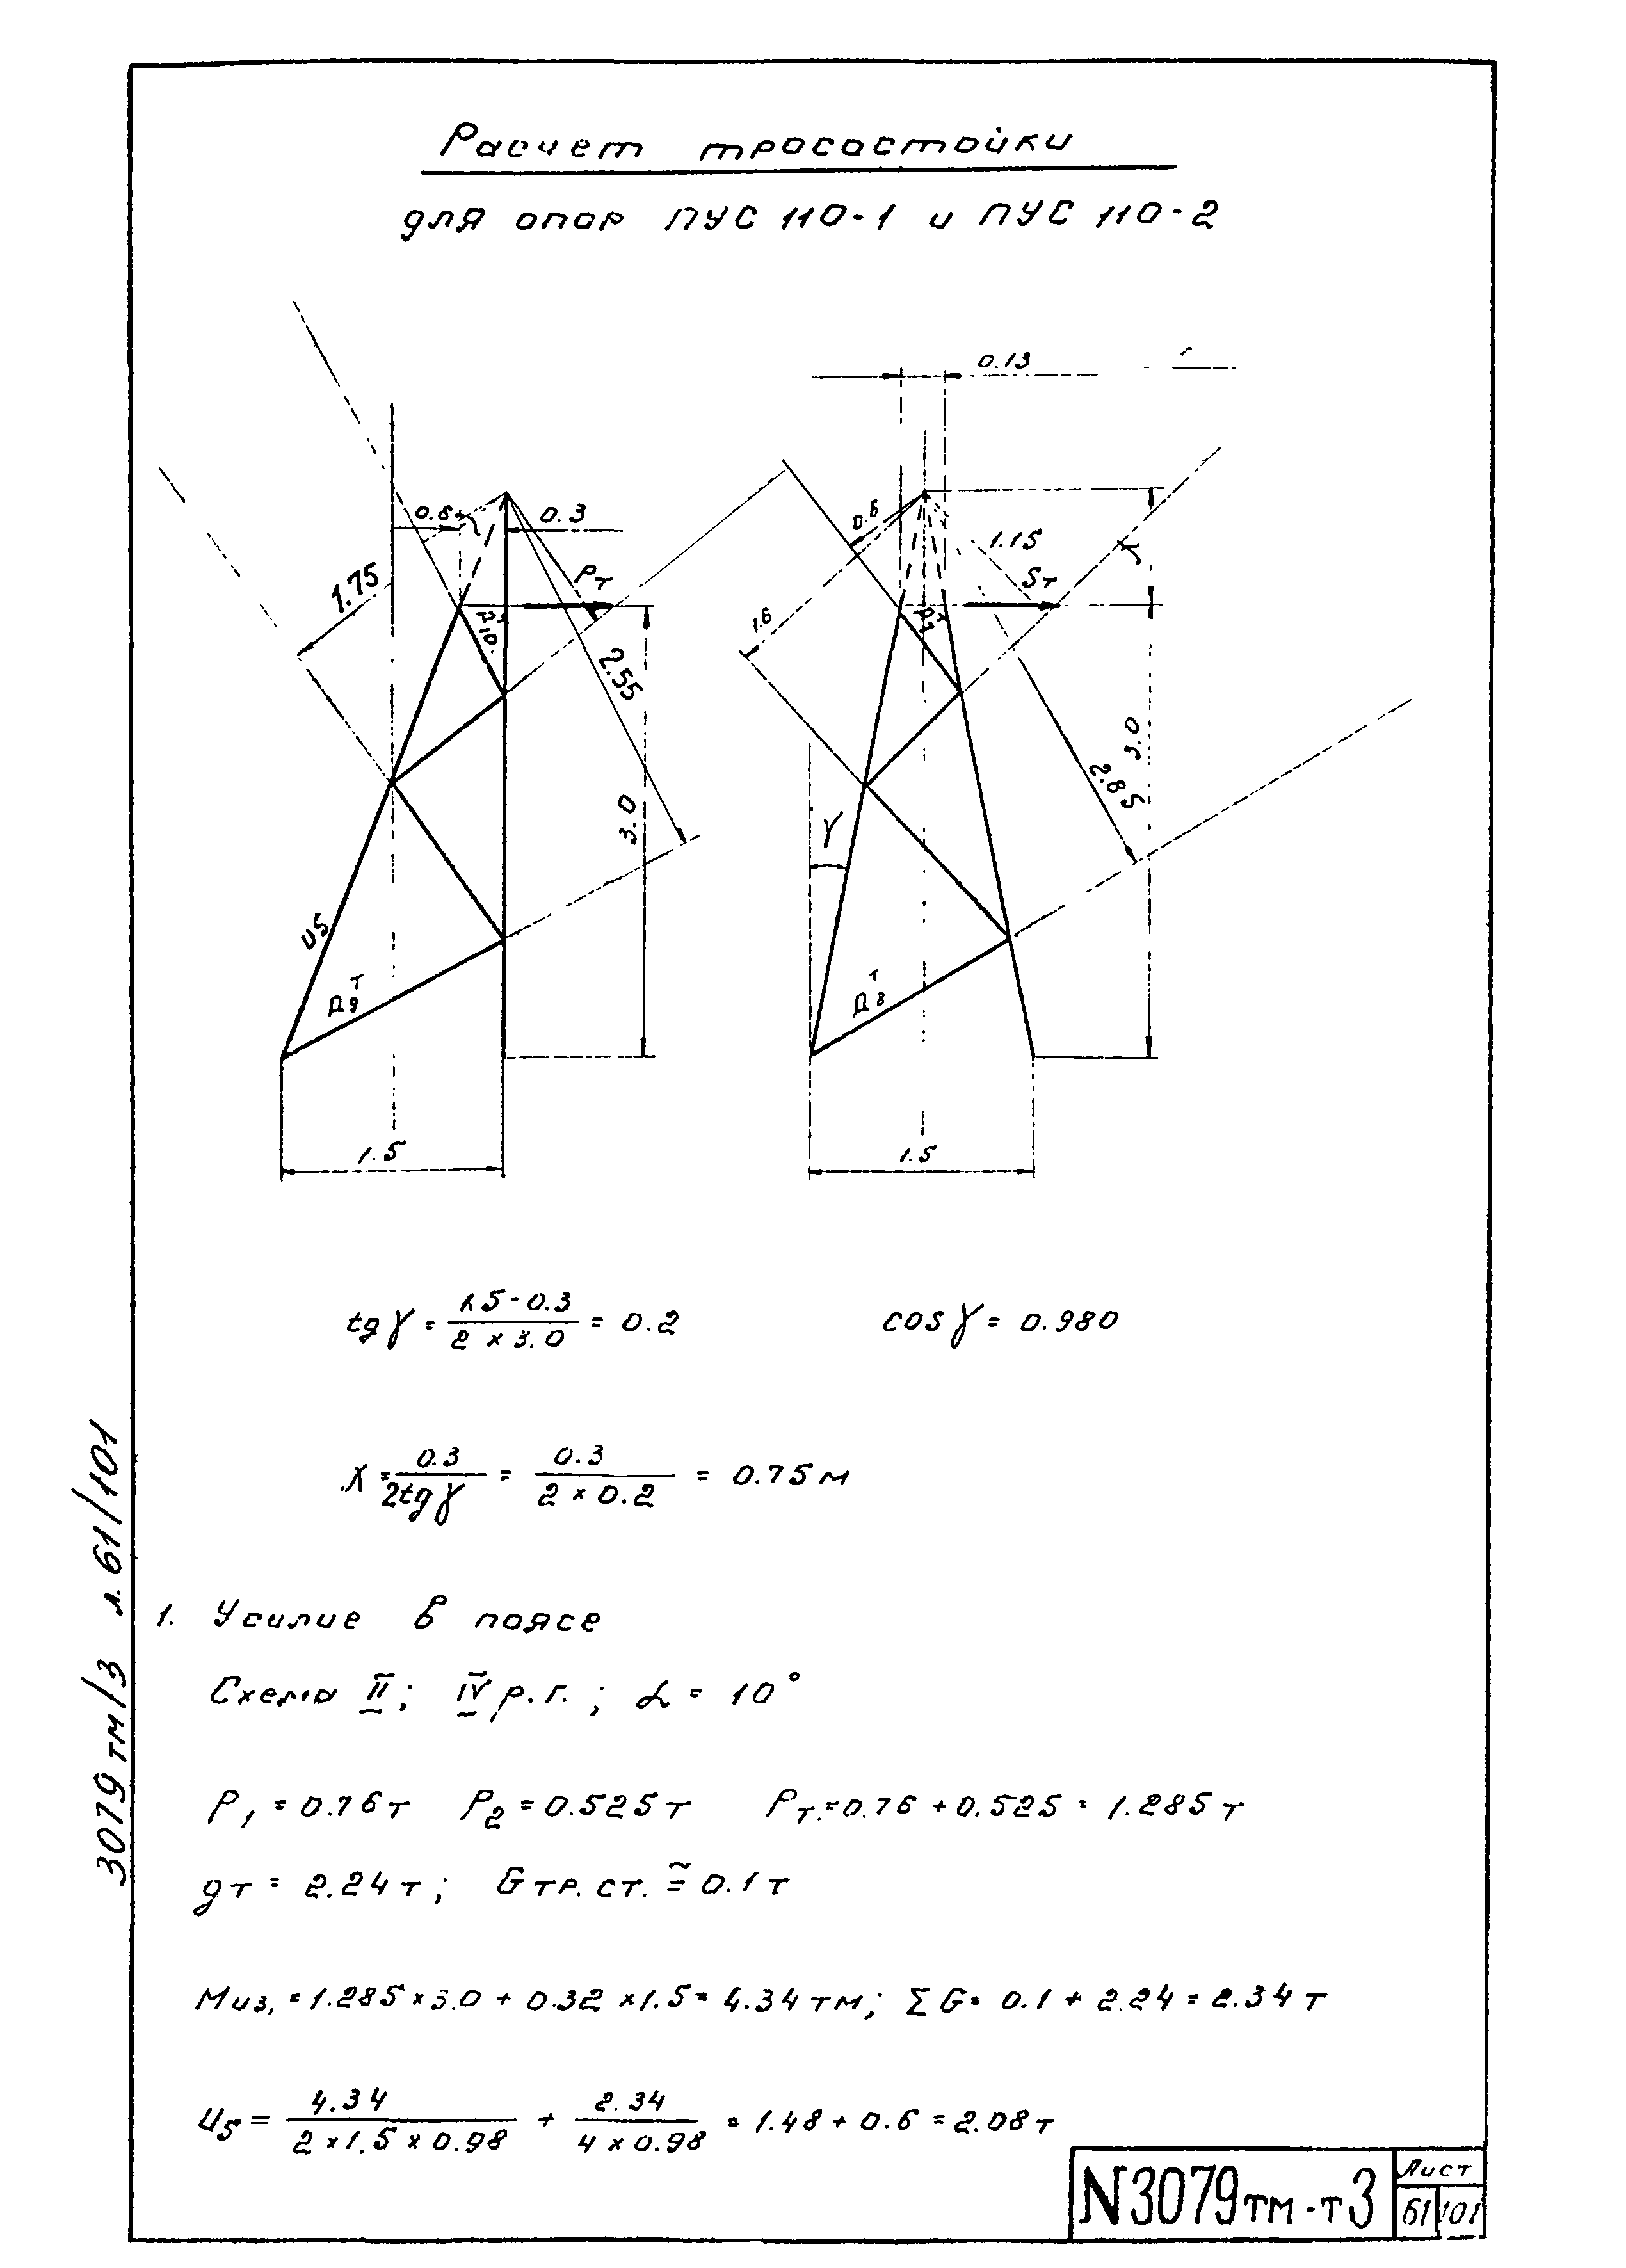 Расчет тросостойки
для опор ПУС 110-1 и ПУС 110-2
0.13
0.6
0.3
1.75
Pт
2.55
Д10т
3.0
U5
Д9т
1.5
0.6
1.15
Sт
x
1.6
3.0
2.85
γ
Д8т
1.5
tgγ = (1.5-0.3)/(2 x 3.0) = 0.2 cosγ = 0.980
X = 0.3/(2tgγ) = 0.3/(2 x 0.2) = 0.75 м
1. Усилие в поясе
Схема II; IV р.г.; α = 10°
P1 = 0.76 т P2 = 0.525 т Pт. = 0.76 + 0.525 = 1.285 т
gт = 2.24 т; Gтр.ст. ≅ 0.1 т
Mиз. = 1.285 x 3.0 + 0.32 x 1.5 = 4.34 тм; ΣG = 0.1 + 2.24 = 2.34 т
U5 = 4.34/(2 x 1.5 x 0.98) + 2.34/(4 x 0.98) = 1.48 + 0.6 = 2.08 т
3079 тм/3 л. 61/101
N3079тм-т3
Лист
61 101